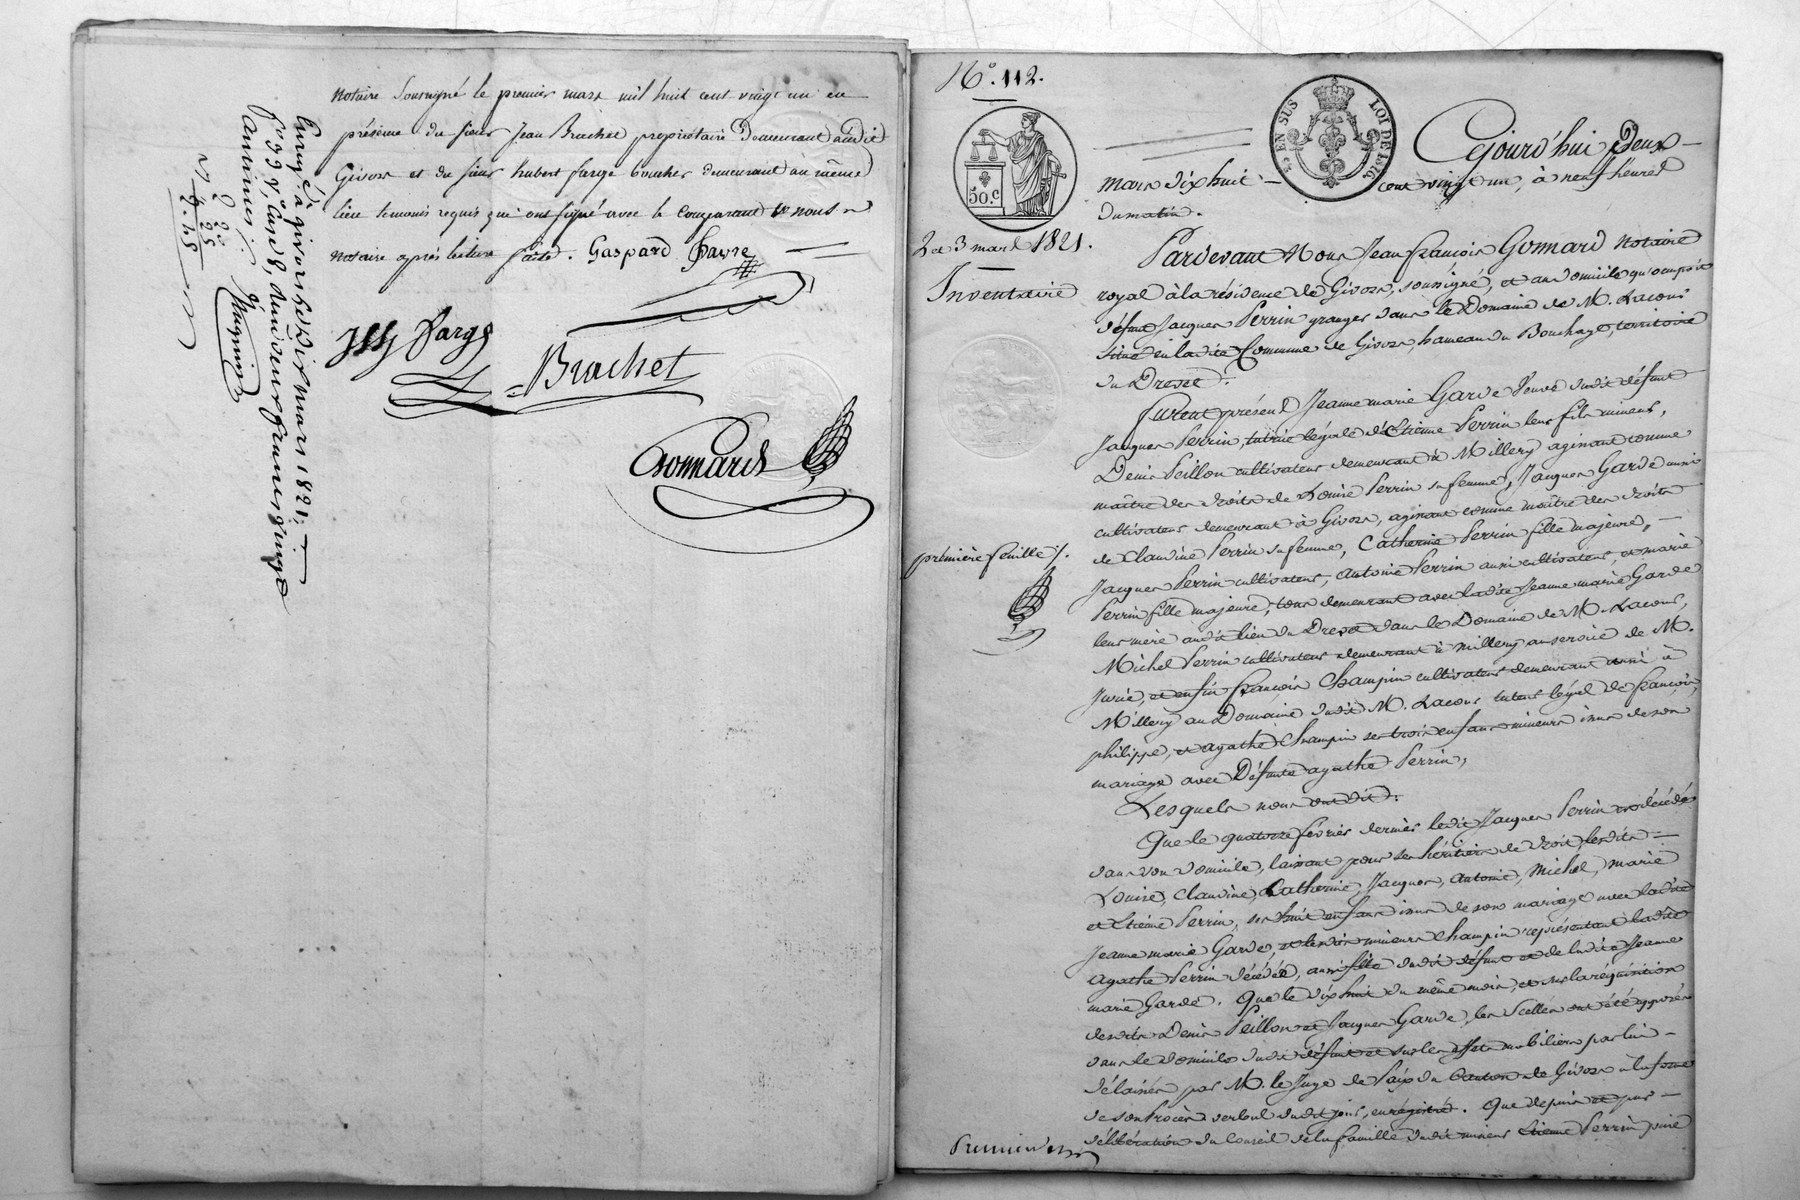 notaire soussigné le premier mars mil huit cent vingt un en
présence du sieur Jean Brachet propriétaire demeurant audit
Givors et du sieur hubert farge boucher demeurant au même
lieu temoins requis qui ont signé avec le comparant et nous
notaire après lecture faite. Gaspard Favre
farge
Brachet
Gonnard
à givors le dix mars 1821.
2.45
N°. 112.
50.C
EN SUS
LOI DE 1816
2 et 3 mars 1821.
Inventaire
première feuille /.
Cejourd'hui Deux
mars dix huit cent vingt un, à neuf heures
du matin.
Pardevant Nous Jean françois Gonnard Notaire
royal à la résidence de Givors, soussigné, et au domicile qu'occupoit
défunt Jacques Perrin granger dans le Domaine de M. Lacour
situé en ladite Commune de Givors, hameau du Bouchage, territoire
du Dreset.
furent présent Jeanne marie Garde Veuve dudit défunt
Jacques Perrin, tutrice légale d'Etienne Perrin leur fils mineur,
Denis Peillon cultivateur demeurant à Millery agissant comme
maître des droits de Louise Perrin sa femme, Jacques Garde aussi
cultivateur demeurant à Givors, agissant comme maître des droits
de Claudine Perrin sa femme, Catherine Perrin fille majeure,
Jacques Perrin cultivateur, Antoine Perrin aussi cultivateur, et marie
Perrin fille majeure, tous demeurant avec ladite Jeanne marie Garde
leur mère audit lieu du Dreset dans le Domaine de M. Lacour,
Michel Perrin cultivateur demeurant à Millery au service de M.
Jurie, et enfin françois Champin cultivateur demeurant aussi à
Millery au Domaine dudit M. Lacour tuteur légal de françois,
philippe, et agathe Champin ses trois enfans mineurs issus de son
mariage avec Défunte agathe Perrin,
Lesquels nous ont dit:
Que le quatorze février dernier ledit Jacques Perrin est décédé
dans son domicile, laissant pour ses héritiers de droit lesdits
Louise, Claudine, Catherine, Jacques, Antoine, Michel, marie
et Etienne Perrin, ses huit enfans issus de son mariage avec ladite
Jeanne marie Garde, et lesdits mineurs Champin représentant ladite
Agathe Perrin décédée, aussi fille dudit défunt et de ladite Jeanne
marie Garde. Que le dix huit du même mois, et sur la réquisition
desdits Denis Peillon et Jacques Garde, les Scellés ont été apposés
dans le domicile dudit défunt et sur les effets mobiliers par lui
délaissés, par M. le Juge de Paix du Canton de Givors à la forme
de son Procès verbal dudit jour, enregistré. Que depuis et par
délibération du Conseil de la famille dudit mineur Etienne Perrin prise